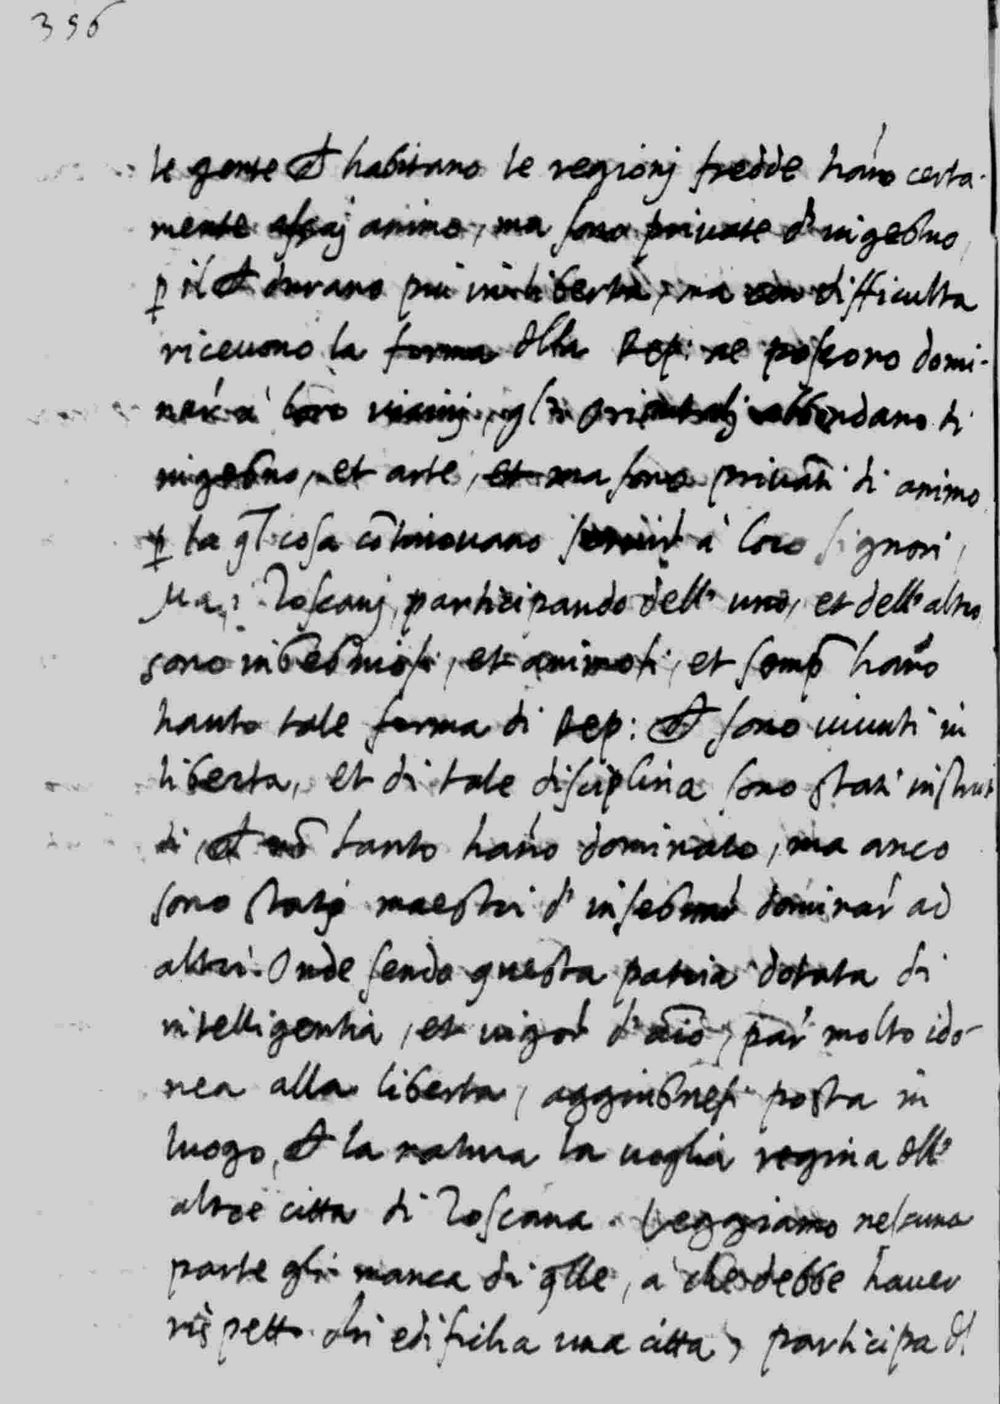 396
le gente ch habitano le regionj fredde hano certa-
mente assaj animo, ma sono private d'ingegno,
p il ch durano piu in liberta, ma con difficulta
ricevono la forma dlla Rep: ne possono domi-
nar' a' loro vicinj, gl'orientalj abbondano di
ingegno, et arte, et ma sono privati di animo
p la ql cosa continovano servir' a' loro signori,
Ma i Toscanj, participando dell' uno, et dell' altro
sono ingegniosi, et animosi, et semp hano
hauto tale forma di Rep: ch sono vivuti in
liberta, et di tale disciplina sono stati instrut
ti, ch no tanto hano dominato, ma anco
sono stati maestri d'insegnar' dominar' ad
altri. Onde sendo questa patria dotata di
intelligentia, et vigor' d'aio, par' molto ido-
nea alla liberta, aggiugnesi posta in
luogo, ch la natura la voglia regina dll'
altre citta di Toscana. Veggiamo nessuna
parte gli manca di qlle, a che debbe haver
rispetto chi edificha una citta, participa d'